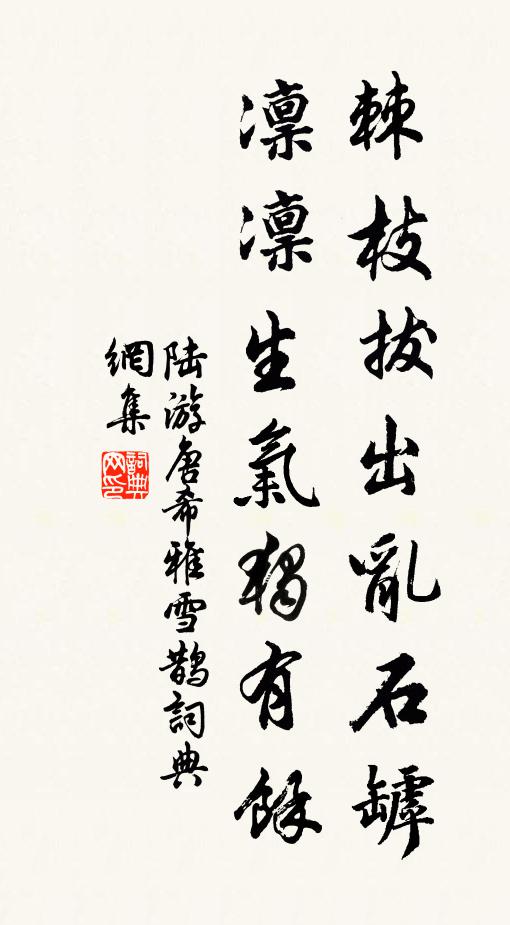 棘枝拔出亂石罅
凜凜生氣獨有餘
陆游唐希雅雪鵲詞典
網集
詞典网印